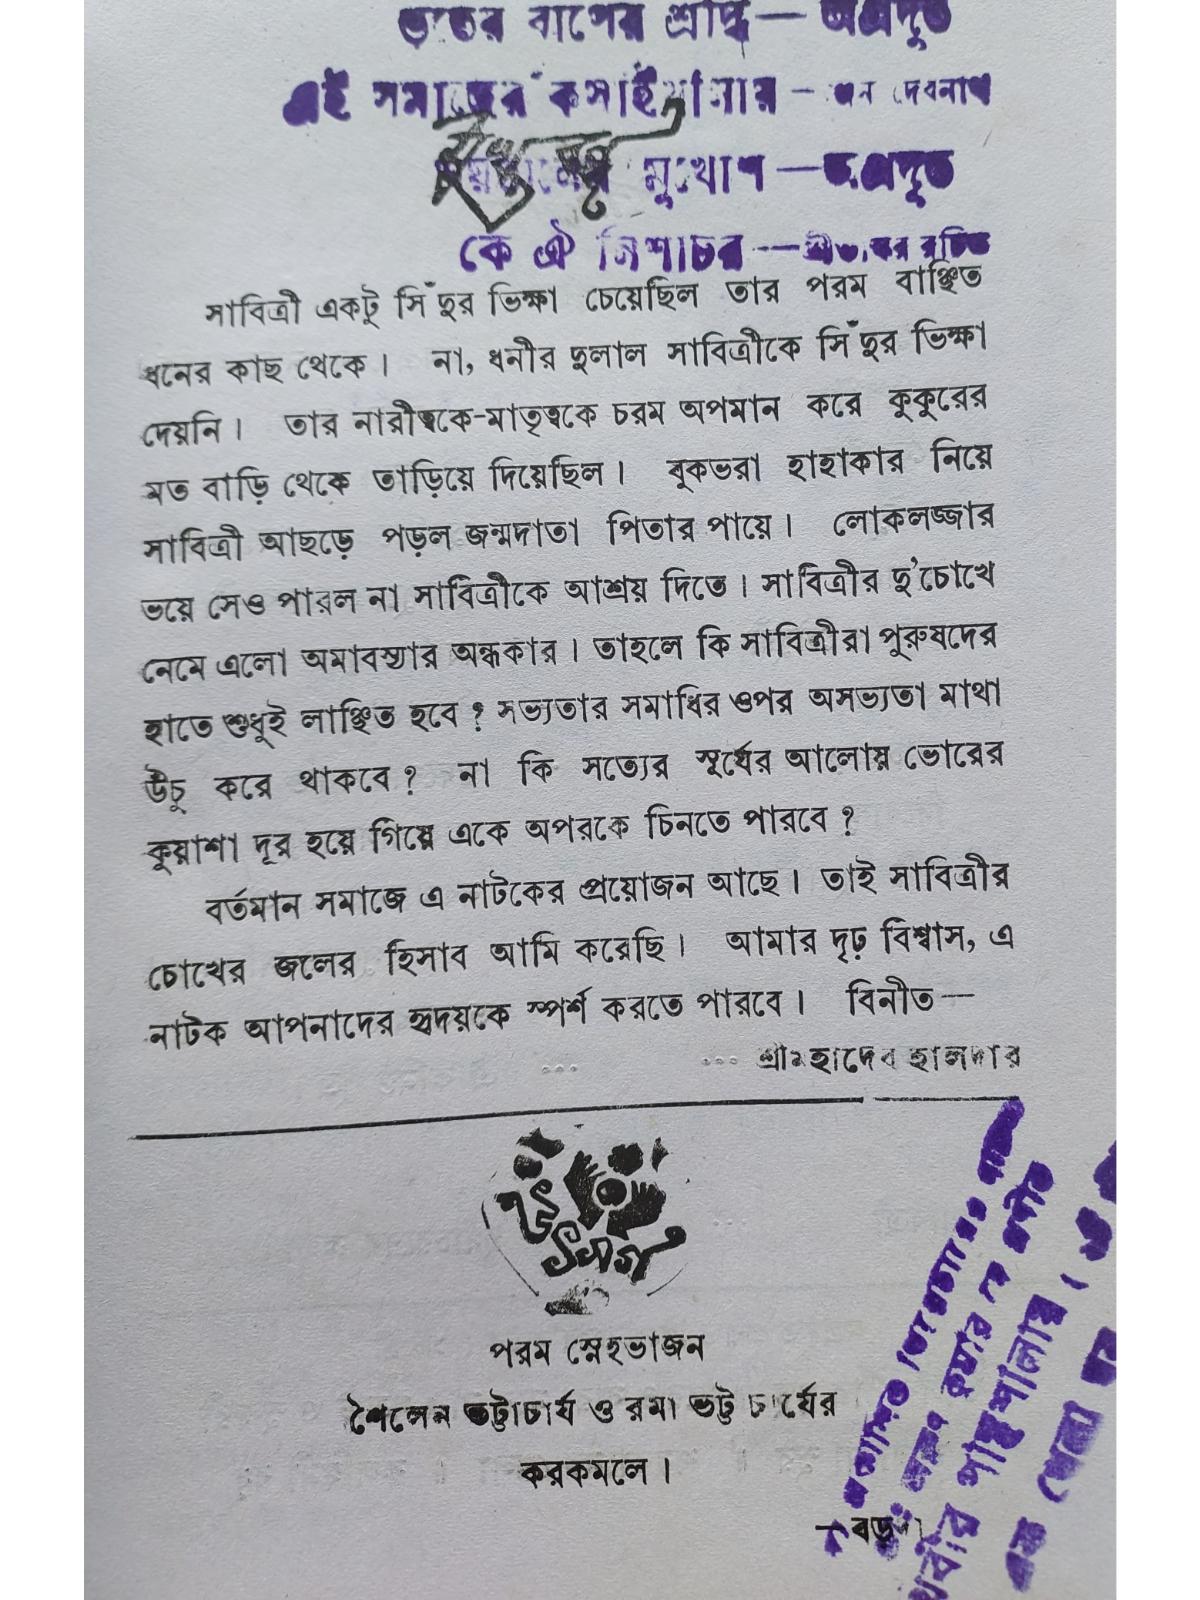 ভূতের বাপের শ্রাদ্ধ — অগ্রদূত
এই সমাজের কসাইখানায় — দেবনাথ
মুখোশ — অগ্রদূত
কে ঐ নিশাচর — রচিত
সাবিত্রী একটু সিঁদুর ভিক্ষা চেয়েছিল তার পরম বাঞ্ছিত
ধনের কাছ থেকে। না, ধনীর দুলাল সাবিত্রীকে সিঁদুর ভিক্ষা
দেয়নি। তার নারীত্বকে-মাতৃত্বকে চরম অপমান করে কুকুরের
মত বাড়ি থেকে তাড়িয়ে দিয়েছিল। বুকভরা হাহাকার নিয়ে
সাবিত্রী আছড়ে পড়ল জন্মদাতা পিতার পায়ে। লোকলজ্জার
ভয়ে সেও পারল না সাবিত্রীকে আশ্রয় দিতে। সাবিত্রীর দু'চোখে
নেমে এলো অমাবস্যার অন্ধকার। তাহলে কি সাবিত্রীরা পুরুষদের
হাতে শুধুই লাঞ্ছিত হবে? সভ্যতার সমাধির ওপর অসভ্যতা মাথা
উঁচু করে থাকবে? না কি সত্যের সূর্যের আলোয় ভোরের
কুয়াশা দূর হয়ে গিয়ে একে অপরকে চিনতে পারবে?
বর্তমান সমাজে এ নাটকের প্রয়োজন আছে। তাই সাবিত্রীর
চোখের জলের হিসাব আমি করেছি। আমার দৃঢ় বিশ্বাস, এ
নাটক আপনাদের হৃদয়কে স্পর্শ করতে পারবে। বিনীত—
... ... শ্রীমহাদেব হালদার
উৎসর্গ
পরম স্নেহভাজন
শৈলেন ভট্টাচার্য ও রমা ভট্টাচার্যের
করকমলে।
—বড়দা